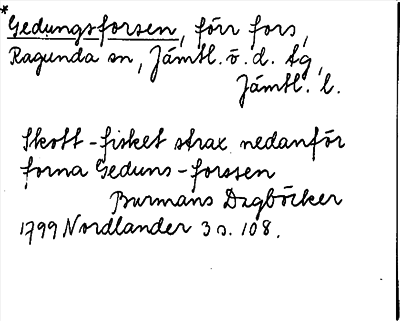 *Gedungsforsen, förr fors,
Ragunda sn, Jämtl. ö. d. tg,
Jämtl. l.
Skott-fisket strax nedanför
forna Geduns-forssen
Burmans Dagböcker
1799 Nordlander 3 s. 108.